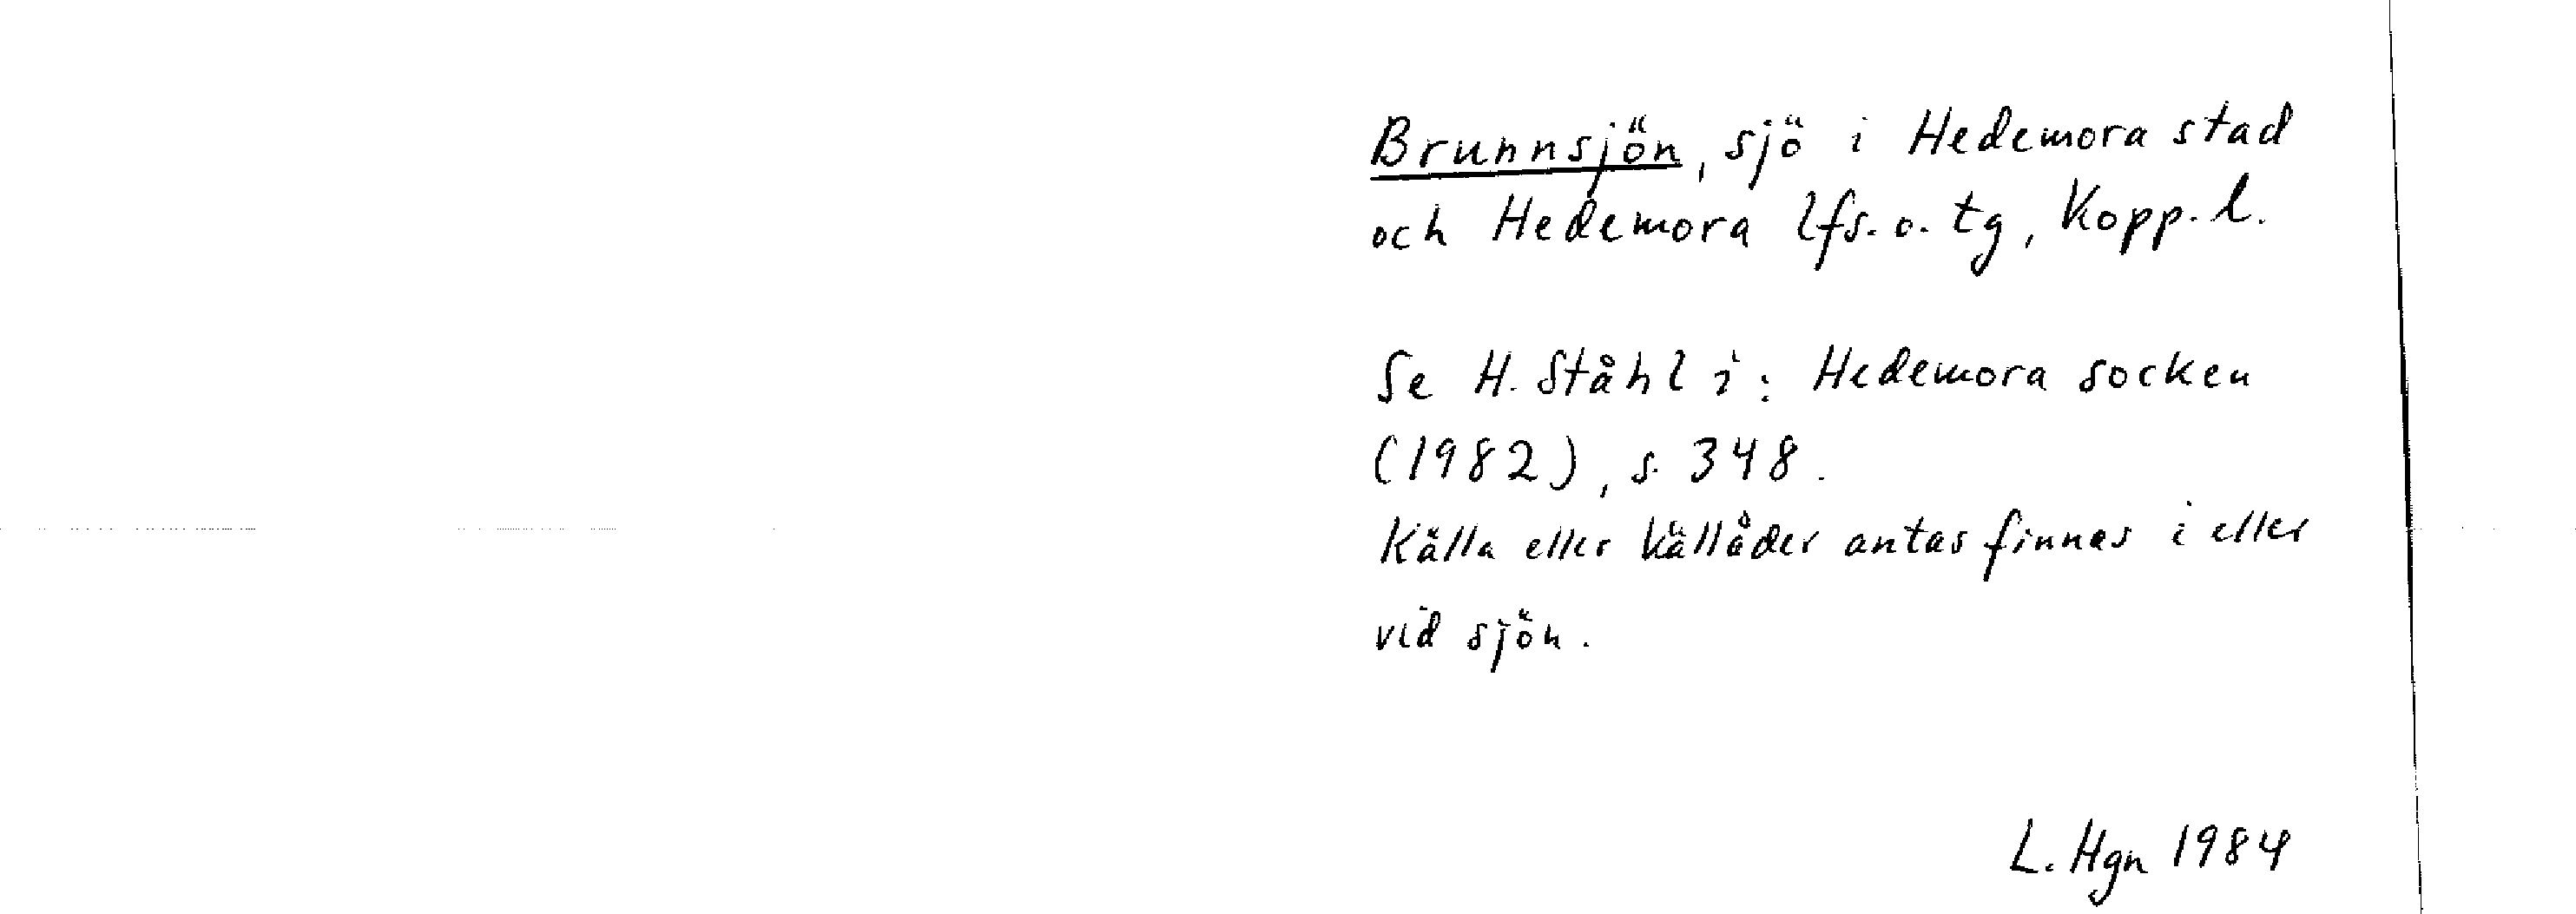 Brunnsjön, sjö i Hedemora stad
och Hedemora lfs. o. tg, Kopp. l.
Se H. Ståhl i: Hedemora socken
(1982), s. 348.
Källa eller källåder antas finnas i eller
vid sjön.
L. Hgn 1984